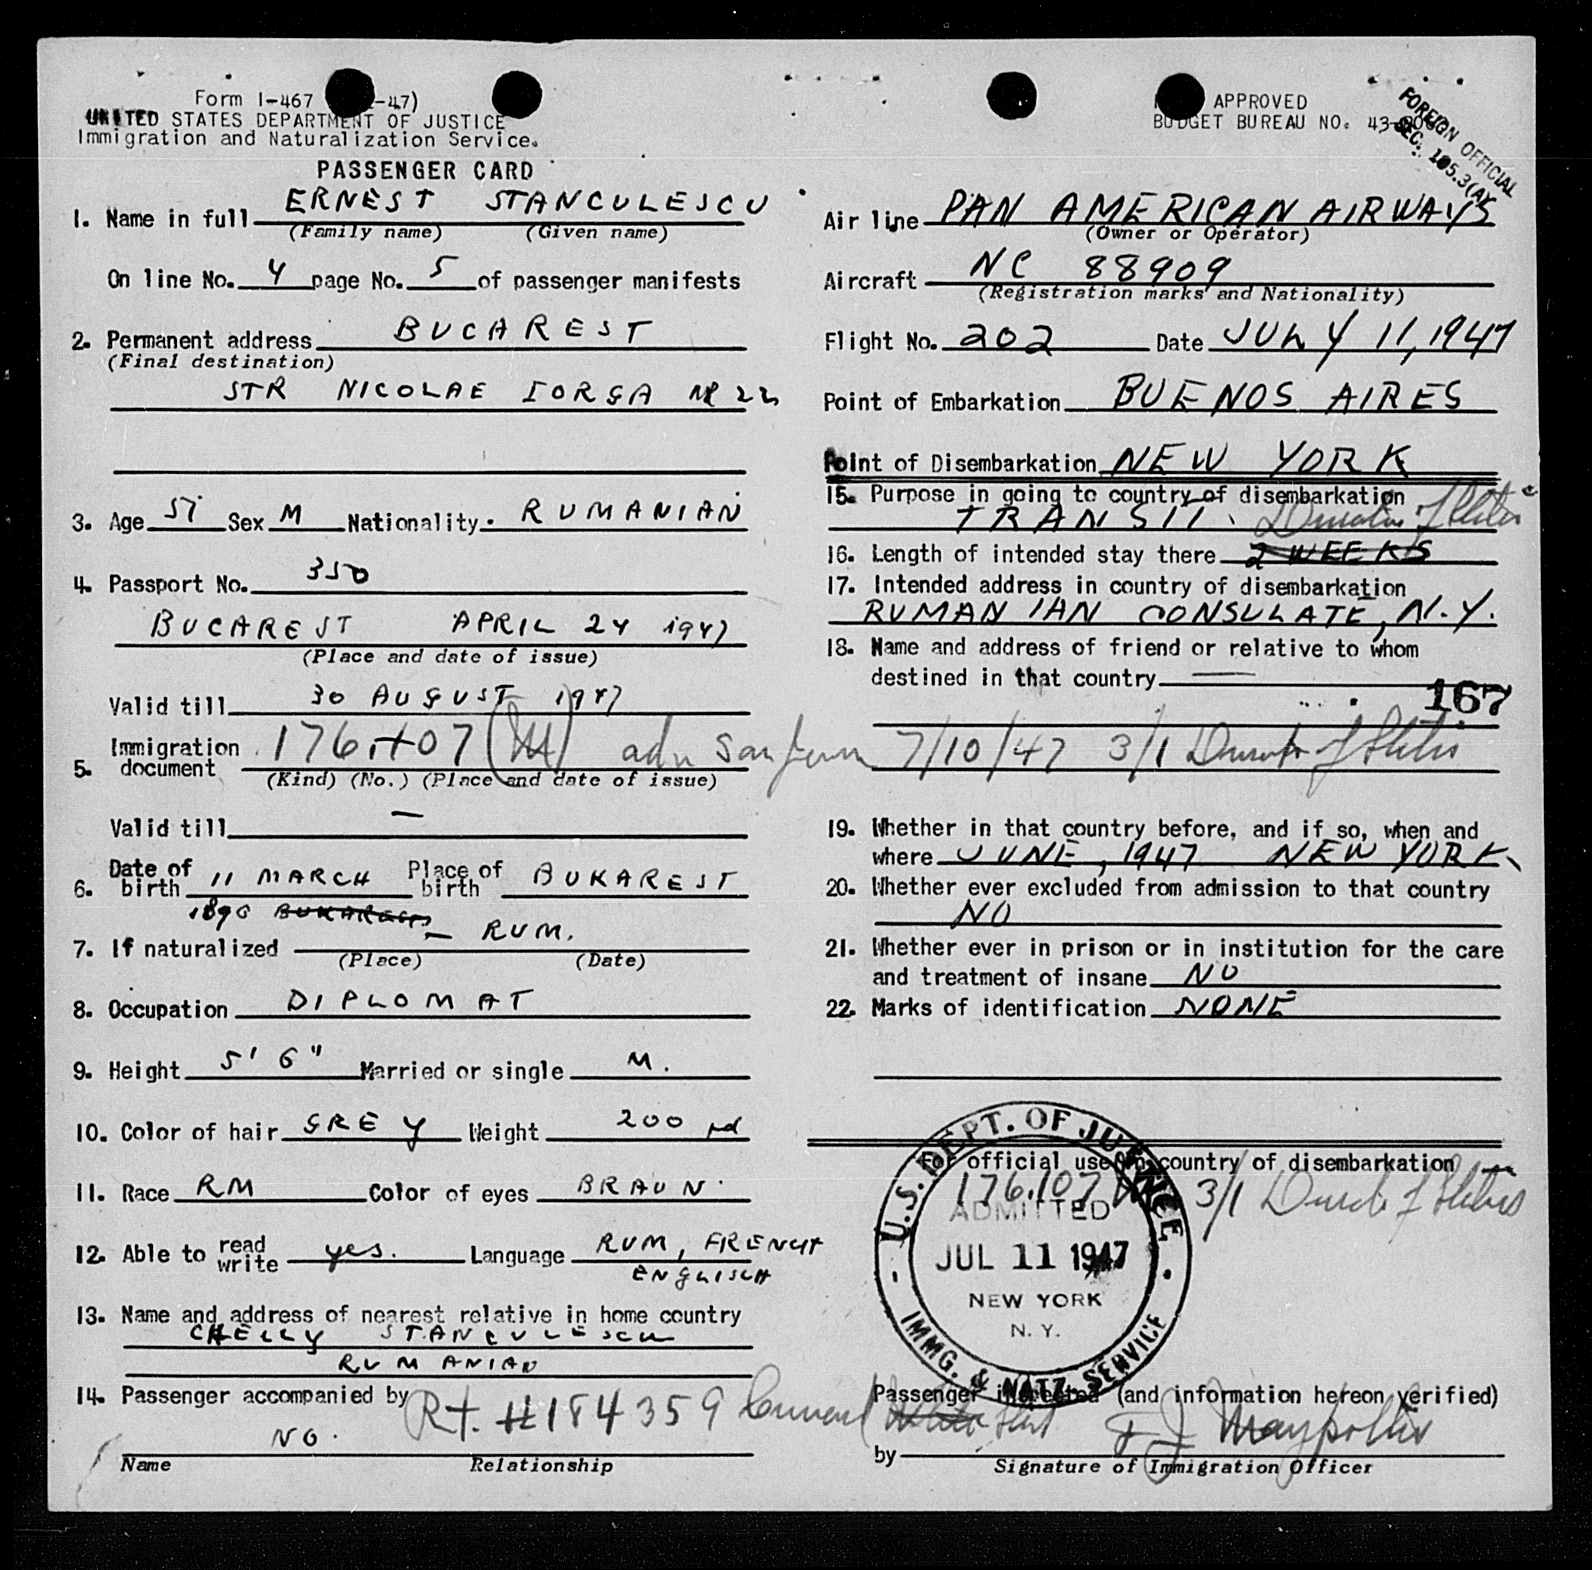 Form I-467 -47)
UNITED STATES DEPARTMENT OF JUSTICE
Immigration and Naturalization Service.
PASSENGER CARD
1. Name in full ERNEST STANCULESCU
(Family name) (Given name)
On line No. 4 page No. 5 of passenger manifests
2. Permanent address BUCAREST
(Final destination)
STR NICOLAE IORGA NR 22
3. Age 51 Sex M Nationality. RUMANIAN
4. Passport No. 350
BUCAREST APRIL 24 1947
(Place and date of issue)
Valid till 30 AUGUST 1947
5. Immigration document 176.107 adm
(Kind) (No.) (Place and date of issue)
Valid till —
6. Date of birth 11 MARCH Place of birth BUKAREST
1896
7. If naturalized — RUM.
(Place) (Date)
8. Occupation DIPLOMAT
9. Height 5' 6" Married or single M.
10. Color of hair GREY Weight 200
11. Race RM Color of eyes BRAUN
12. Able to read write yes. Language RUM, FRENCH
ENGLISCH
13. Name and address of nearest relative in home country
CHELLY STANCULESCU
RUMANIAN
14. Passenger accompanied by Rt. #184359
NO.
Name Relationship
APPROVED
BUDGET BUREAU NO. 43-
FOREIGN OFFICIAL
SEC. 105.3(A)
Air line PAN AMERICAN AIRWAYS
(Owner or Operator)
Aircraft NC 88909
(Registration marks and Nationality)
Flight No. 202 Date JULY 11, 1947
Point of Embarkation BUENOS AIRES
Point of Disembarkation NEW YORK
15. Purpose in going to country of disembarkation
TRANSIT. Duration of Status
16. Length of intended stay there 2 WEEKS
17. Intended address in country of disembarkation
RUMANIAN CONSULATE, N.Y.
18. Name and address of friend or relative to whom
destined in that country —
167
7/10/47 3/1 Duration of Status
19. Whether in that country before, and if so, when and
where JUNE, 1947 NEW YORK
20. Whether ever excluded from admission to that country
NO
21. Whether ever in prison or in institution for the care
and treatment of insane NO
22. Marks of identification NONE
For official use in country of disembarkation
176.107 3/1 Durat. of Status
U.S. DEPT. OF JUSTICE
ADMITTED
JUL 11 1947
NEW YORK
N. Y.
IMMG. & NATZ. SERVICE
Passenger inspected (and information hereon verified)
by
Signature of Immigration Officer